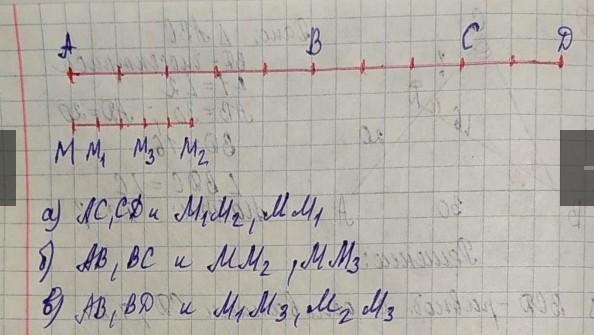 A B C D
M M₁ M₃ M₂
а) AC, CD и M₁M₂, MM₁
б) AB, BC и MM₂, MM₃
в) AB, BD и M₁M₃, M₂M₃